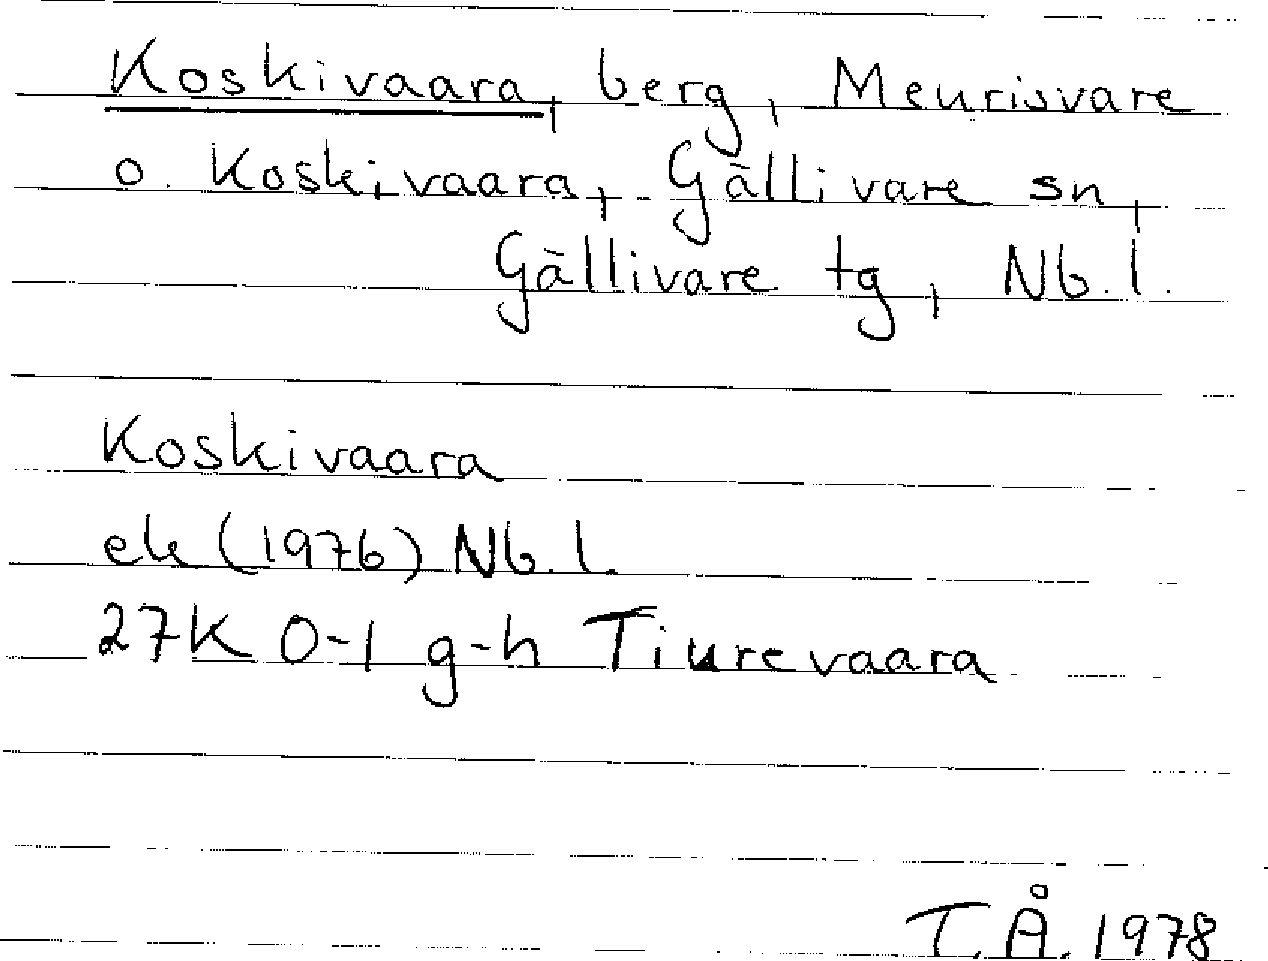 Koskivaara, berg, Meurisvare
o. Koskivaara, Gällivare sn,
Gällivare tg, Nb.l.
Koskivaara
ek (1976) Nb.l.
27K 0-1 g-h Tiurevaara
T.Å. 1978